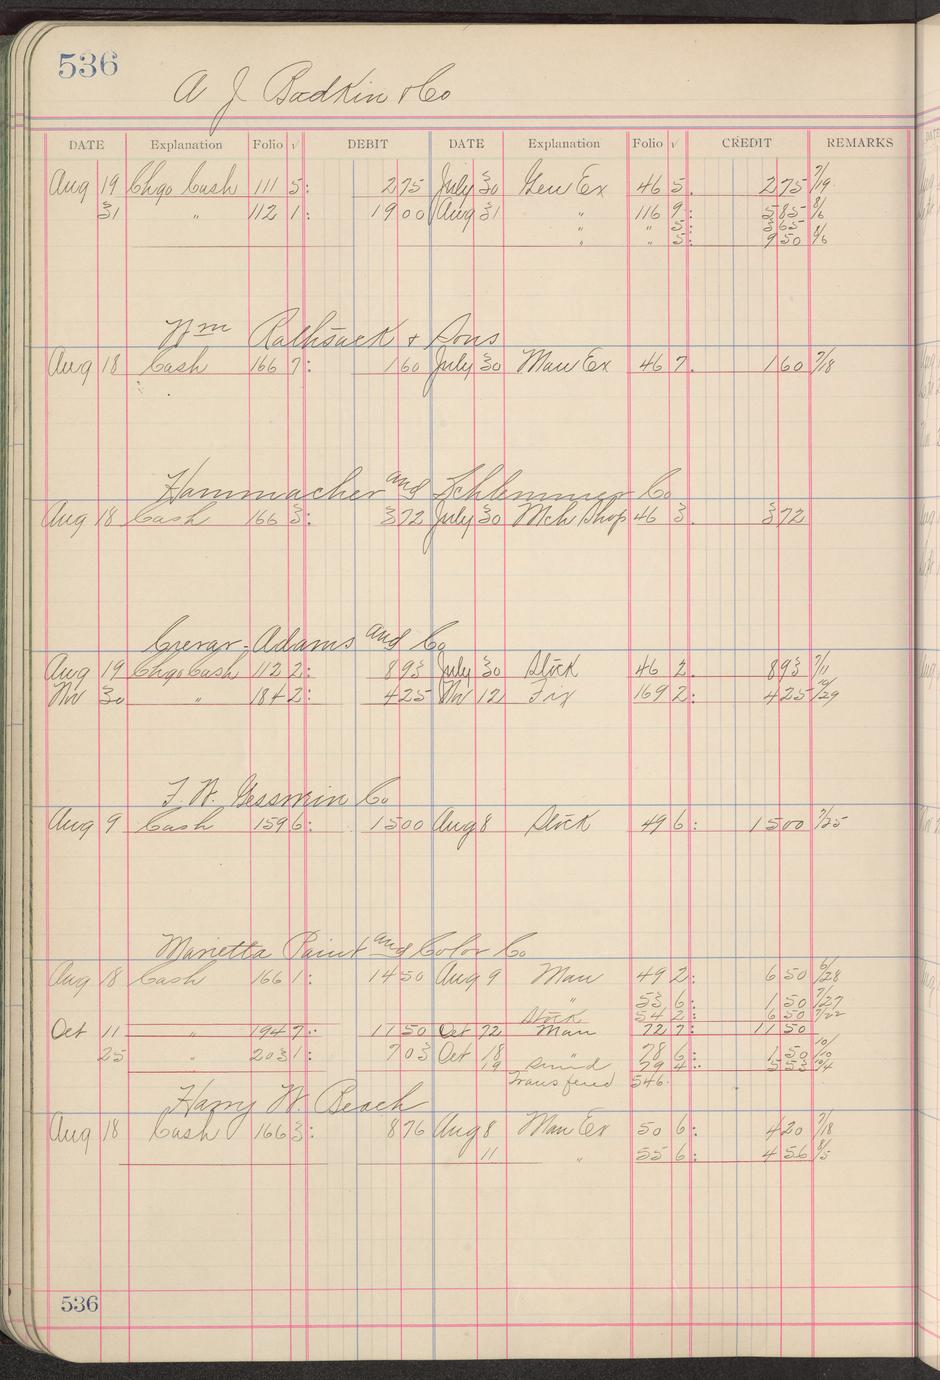 536
A J Badkin & Co
DATE Explanation Folio √ DEBIT DATE Explanation Folio √ CREDIT REMARKS
Aug 19 Chgo Cash 111 5: 2 75 July 30 Gen Ex 46 5. 2 75 7/19
31 " 112 1: 19 00 Aug 31 " 116 9: 5 85 8/6
" " 5: 3 65
" " 5: 9 50 8/6
Wm Rathsack & Sons
Aug 18 Cash 166 7: 1 60 July 30 Man Ex 46 7. 1 60 7/18
Hammacher and Schlemmer Co
Aug 18 Cash 166 3: 3 72 July 30 Mch Shop 46 3. 3 72
Crerar-Adams and Co
Aug 19 Chgo Cash 112 2: 8 93 July 30 Stock 46 2 8 93 7/11
Nov 30 " 184 2: 4 25 Nov 12 Fix 169 2: 4 25 10/29
F. W. Gessmin Co
Aug 9 Cash 159 6: 15 00 Aug 8 Stock 49 6: 15 00 7/25
Marietta Paint and Color Co
Aug 18 Cash 166 1: 14 50 Aug 9 Man 49 2: 6 50 6/28
" 53 6: 1 50 7/27
Stock 54 2: 6 50 7/22
Oct 11 " 194 7: 11 50 Oct 12 Man 72 7: 11 50
25 " 203 1: 7 03 Oct 18 " 78 6: 1 50 10/10
19 79 4: 5 53 10/4
Transfered 546
Harry W. Beach
Aug 18 Cash 166 3: 8 76 Aug 8 Man Ex 50 6: 4 20 7/18
11 " 55 6: 4 56 8/5
536